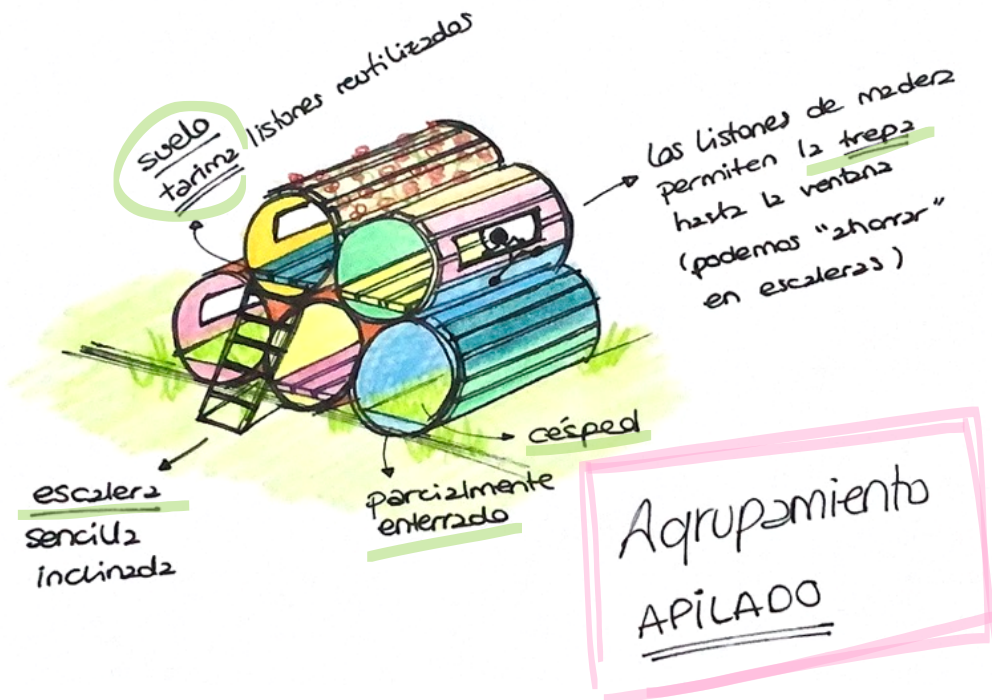 suelo
tarima listones reutilizados
Los listones de madera
permiten la trepa
hasta la ventana
(podemos "ahorrar"
en escaleras)
césped
parcialmente
enterrado
escalera
sencilla
inclinada
Agrupamiento
APILADO